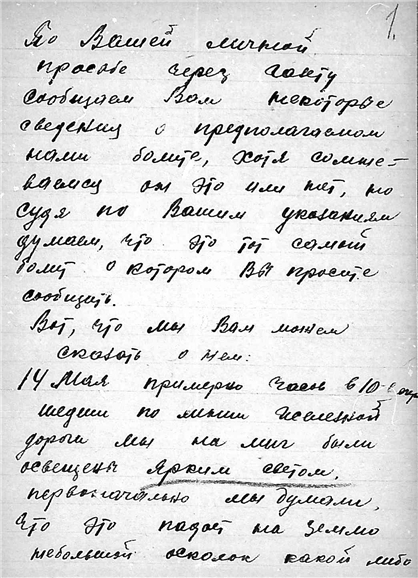 1.
По Вашей личной
просьбе через газету
сообщаем Вам некоторые
сведения о предполагаемом
нами болиде, хотя сомне-
ваемся он это или нет, но
судя по Вашим указаниям
думаем, что это тот самый
болид о котором Вы просите
сообщить.
Вот, что мы Вам можем
сказать о нем:
14 Мая примерно часов в 10-
шедши по линии железной
дороги мы на миг были
освещены ярким светом,
первоначально мы думали,
что это падает на землю
небольшой осколок какой либо